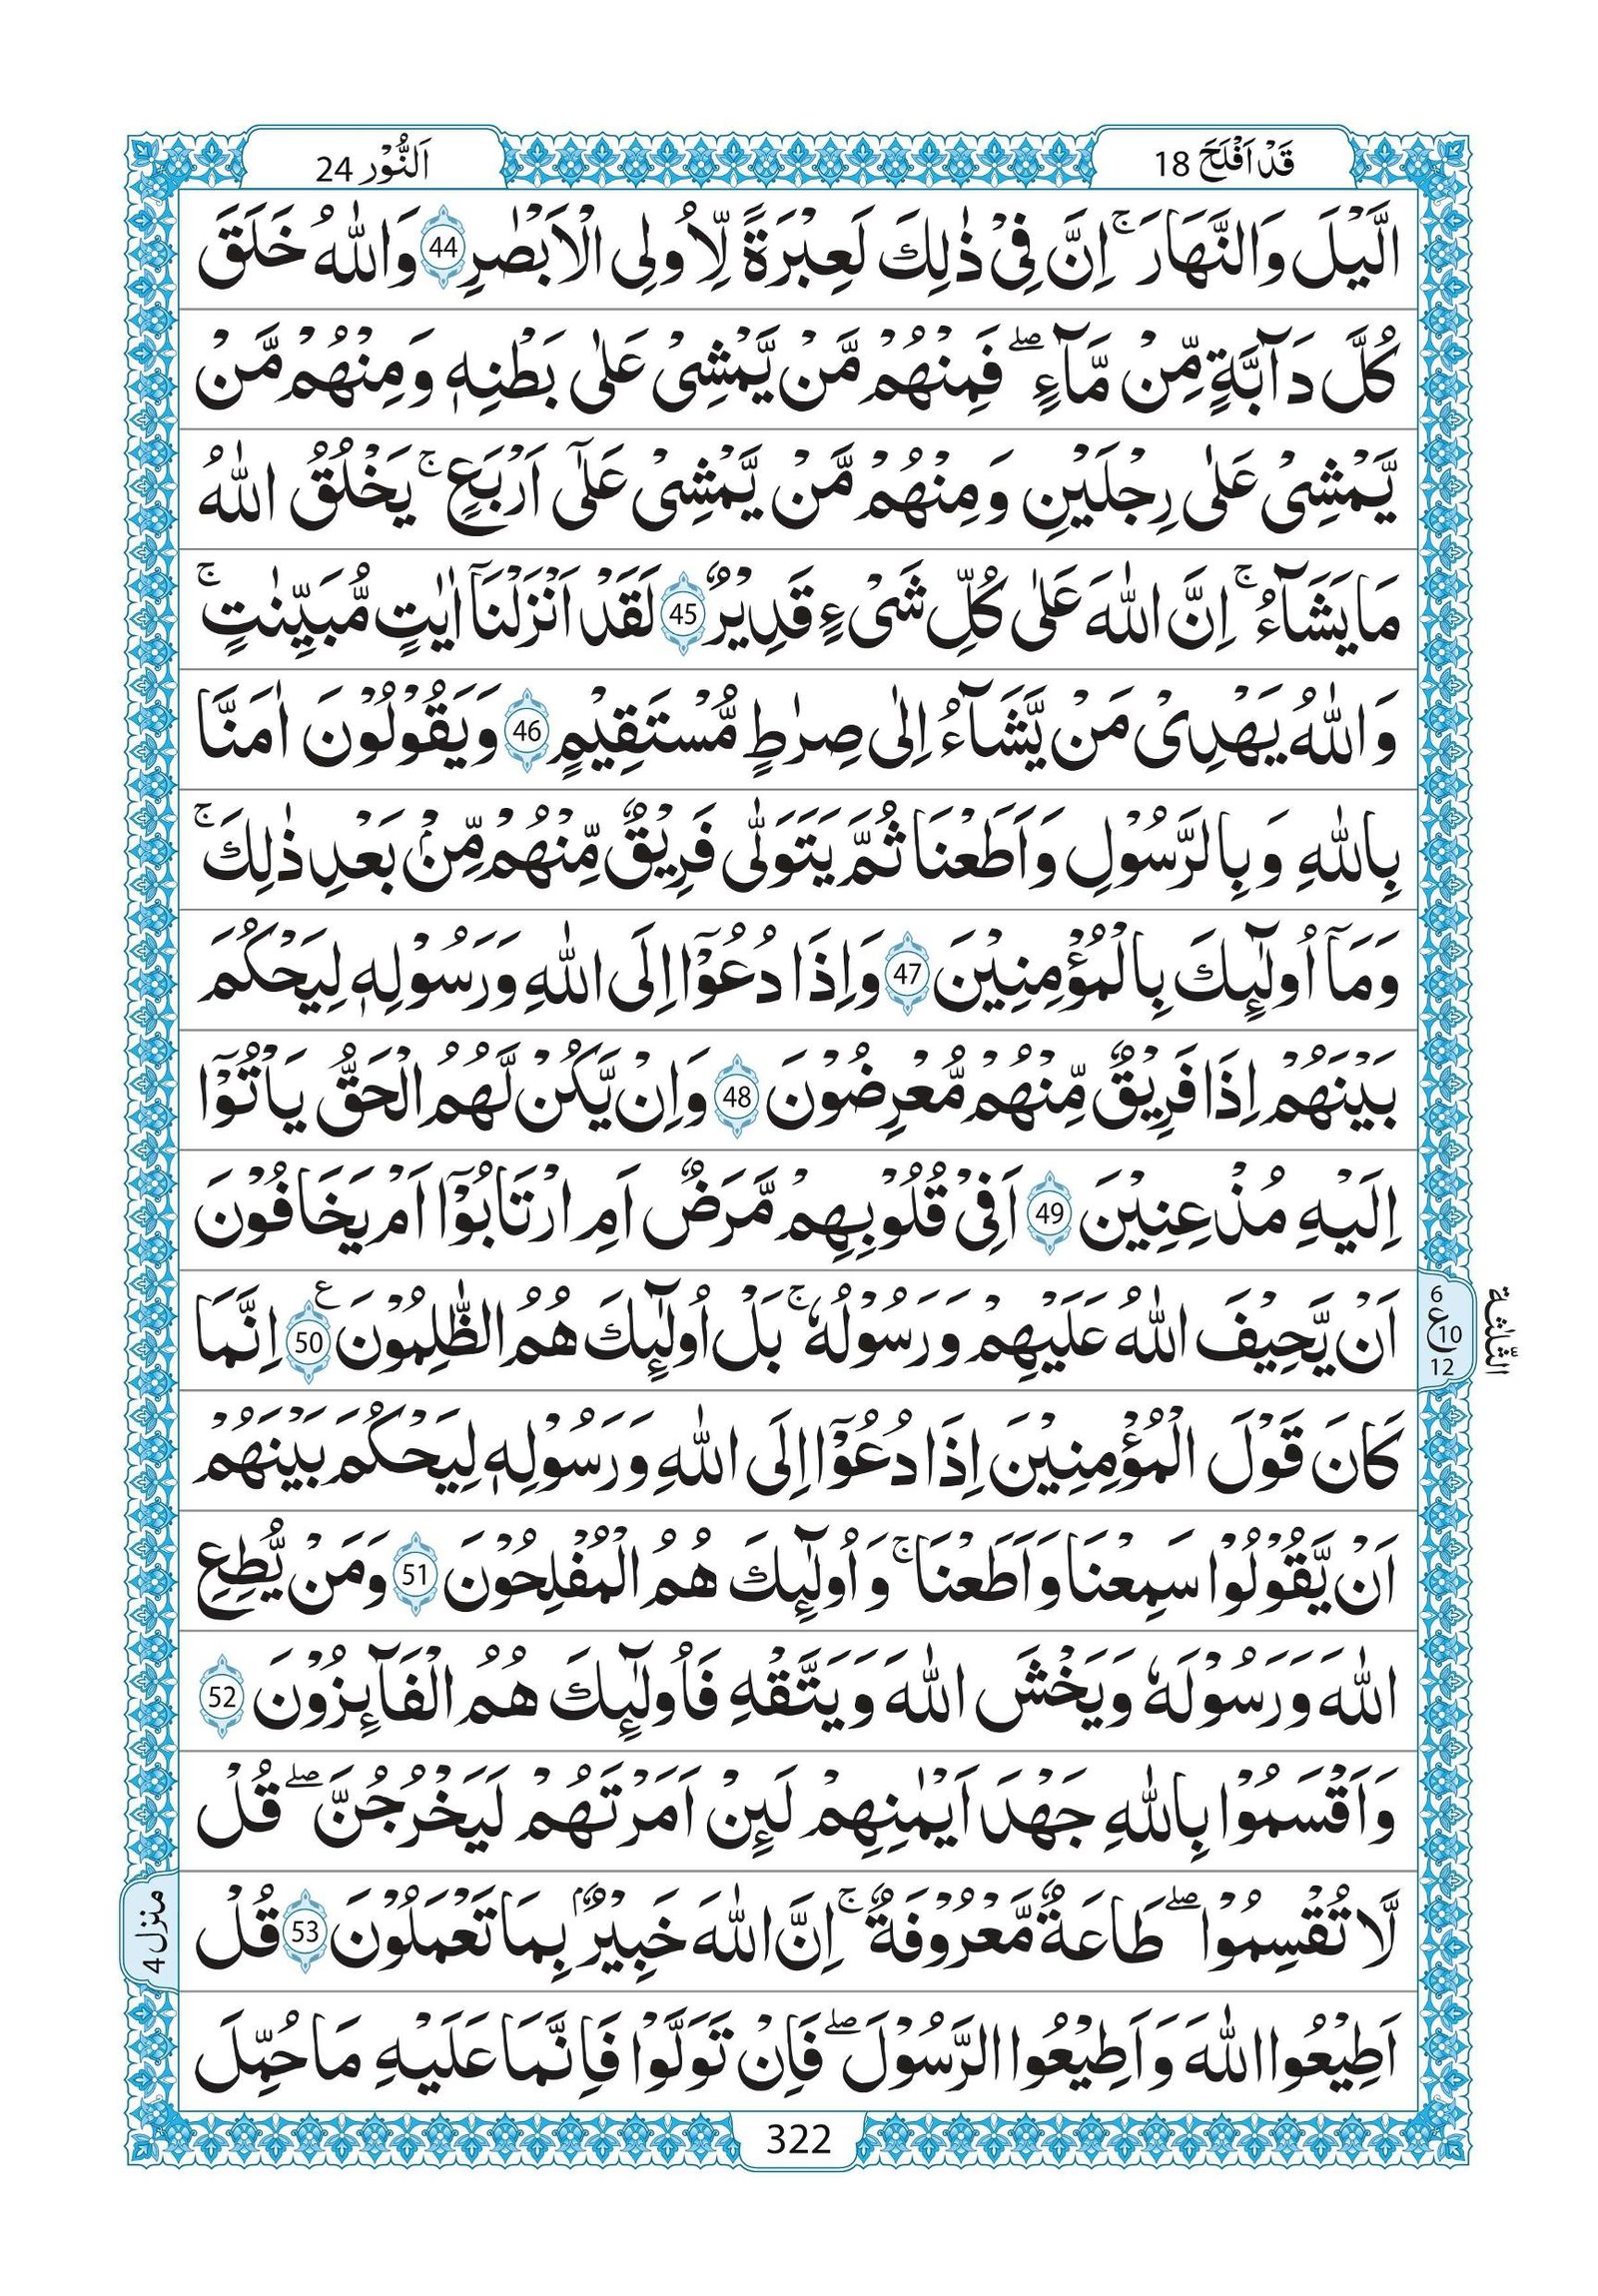 قَدْ اَفْلَحَ 18
اَلنُّوْر 24
الَّيْلَ وَالنَّهَارَ ۚ اِنَّ فِىْ ذٰلِكَ لَعِبْرَةً لِّاُولِى الْاَبْصٰرِ 44 وَاللّٰهُ خَلَقَ
كُلَّ دَآبَّةٍ مِّنْ مَّآءٍ ۖ فَمِنْهُمْ مَّنْ يَّمْشِىْ عَلٰى بَطْنِهٖ وَمِنْهُمْ مَّنْ
يَّمْشِىْ عَلٰى رِجْلَيْنِ وَمِنْهُمْ مَّنْ يَّمْشِىْ عَلٰٓى اَرْبَعٍ ۚ يَخْلُقُ اللّٰهُ
مَا يَشَآءُ ۚ اِنَّ اللّٰهَ عَلٰى كُلِّ شَىْءٍ قَدِيْرٌ 45 لَقَدْ اَنْزَلْنَآ اٰيٰتٍ مُّبَيِّنٰتٍ ۚ
وَاللّٰهُ يَهْدِىْ مَنْ يَّشَآءُ اِلٰى صِرٰطٍ مُّسْتَقِيْمٍ 46 وَيَقُوْلُوْنَ اٰمَنَّا
بِاللّٰهِ وَبِالرَّسُوْلِ وَاَطَعْنَا ثُمَّ يَتَوَلّٰى فَرِيْقٌ مِّنْهُمْ مِّنْۢ بَعْدِ ذٰلِكَ ۚ
وَمَآ اُولٰٓئِكَ بِالْمُؤْمِنِيْنَ 47 وَاِذَا دُعُوْٓا اِلَى اللّٰهِ وَرَسُوْلِهٖ لِيَحْكُمَ
بَيْنَهُمْ اِذَا فَرِيْقٌ مِّنْهُمْ مُّعْرِضُوْنَ 48 وَاِنْ يَّكُنْ لَّهُمُ الْحَقُّ يَاْتُوْٓا
اِلَيْهِ مُذْعِنِيْنَ 49 اَفِىْ قُلُوْبِهِمْ مَّرَضٌ اَمِ ارْتَابُوْٓا اَمْ يَخَافُوْنَ
اَنْ يَّحِيْفَ اللّٰهُ عَلَيْهِمْ وَرَسُوْلُهٗ ۚ بَلْ اُولٰٓئِكَ هُمُ الظّٰلِمُوْنَ ع 50 اِنَّمَا
6
ع 10
12
الثلٰثة
كَانَ قَوْلَ الْمُؤْمِنِيْنَ اِذَا دُعُوْٓا اِلَى اللّٰهِ وَرَسُوْلِهٖ لِيَحْكُمَ بَيْنَهُمْ
اَنْ يَّقُوْلُوْا سَمِعْنَا وَاَطَعْنَا ۚ وَاُولٰٓئِكَ هُمُ الْمُفْلِحُوْنَ 51 وَمَنْ يُّطِعِ
اللّٰهَ وَرَسُوْلَهٗ وَيَخْشَ اللّٰهَ وَيَتَّقْهِ فَاُولٰٓئِكَ هُمُ الْفَآئِزُوْنَ 52
وَاَقْسَمُوْا بِاللّٰهِ جَهْدَ اَيْمٰنِهِمْ لَئِنْ اَمَرْتَهُمْ لَيَخْرُجُنَّ ۖ قُلْ
لَّا تُقْسِمُوْا ۖ طَاعَةٌ مَّعْرُوْفَةٌ ۚ اِنَّ اللّٰهَ خَبِيْرٌۢ بِمَا تَعْمَلُوْنَ 53 قُلْ
منزل 4
اَطِيْعُوا اللّٰهَ وَاَطِيْعُوا الرَّسُوْلَ ۖ فَاِنْ تَوَلَّوْا فَاِنَّمَا عَلَيْهِ مَا حُمِّلَ
322